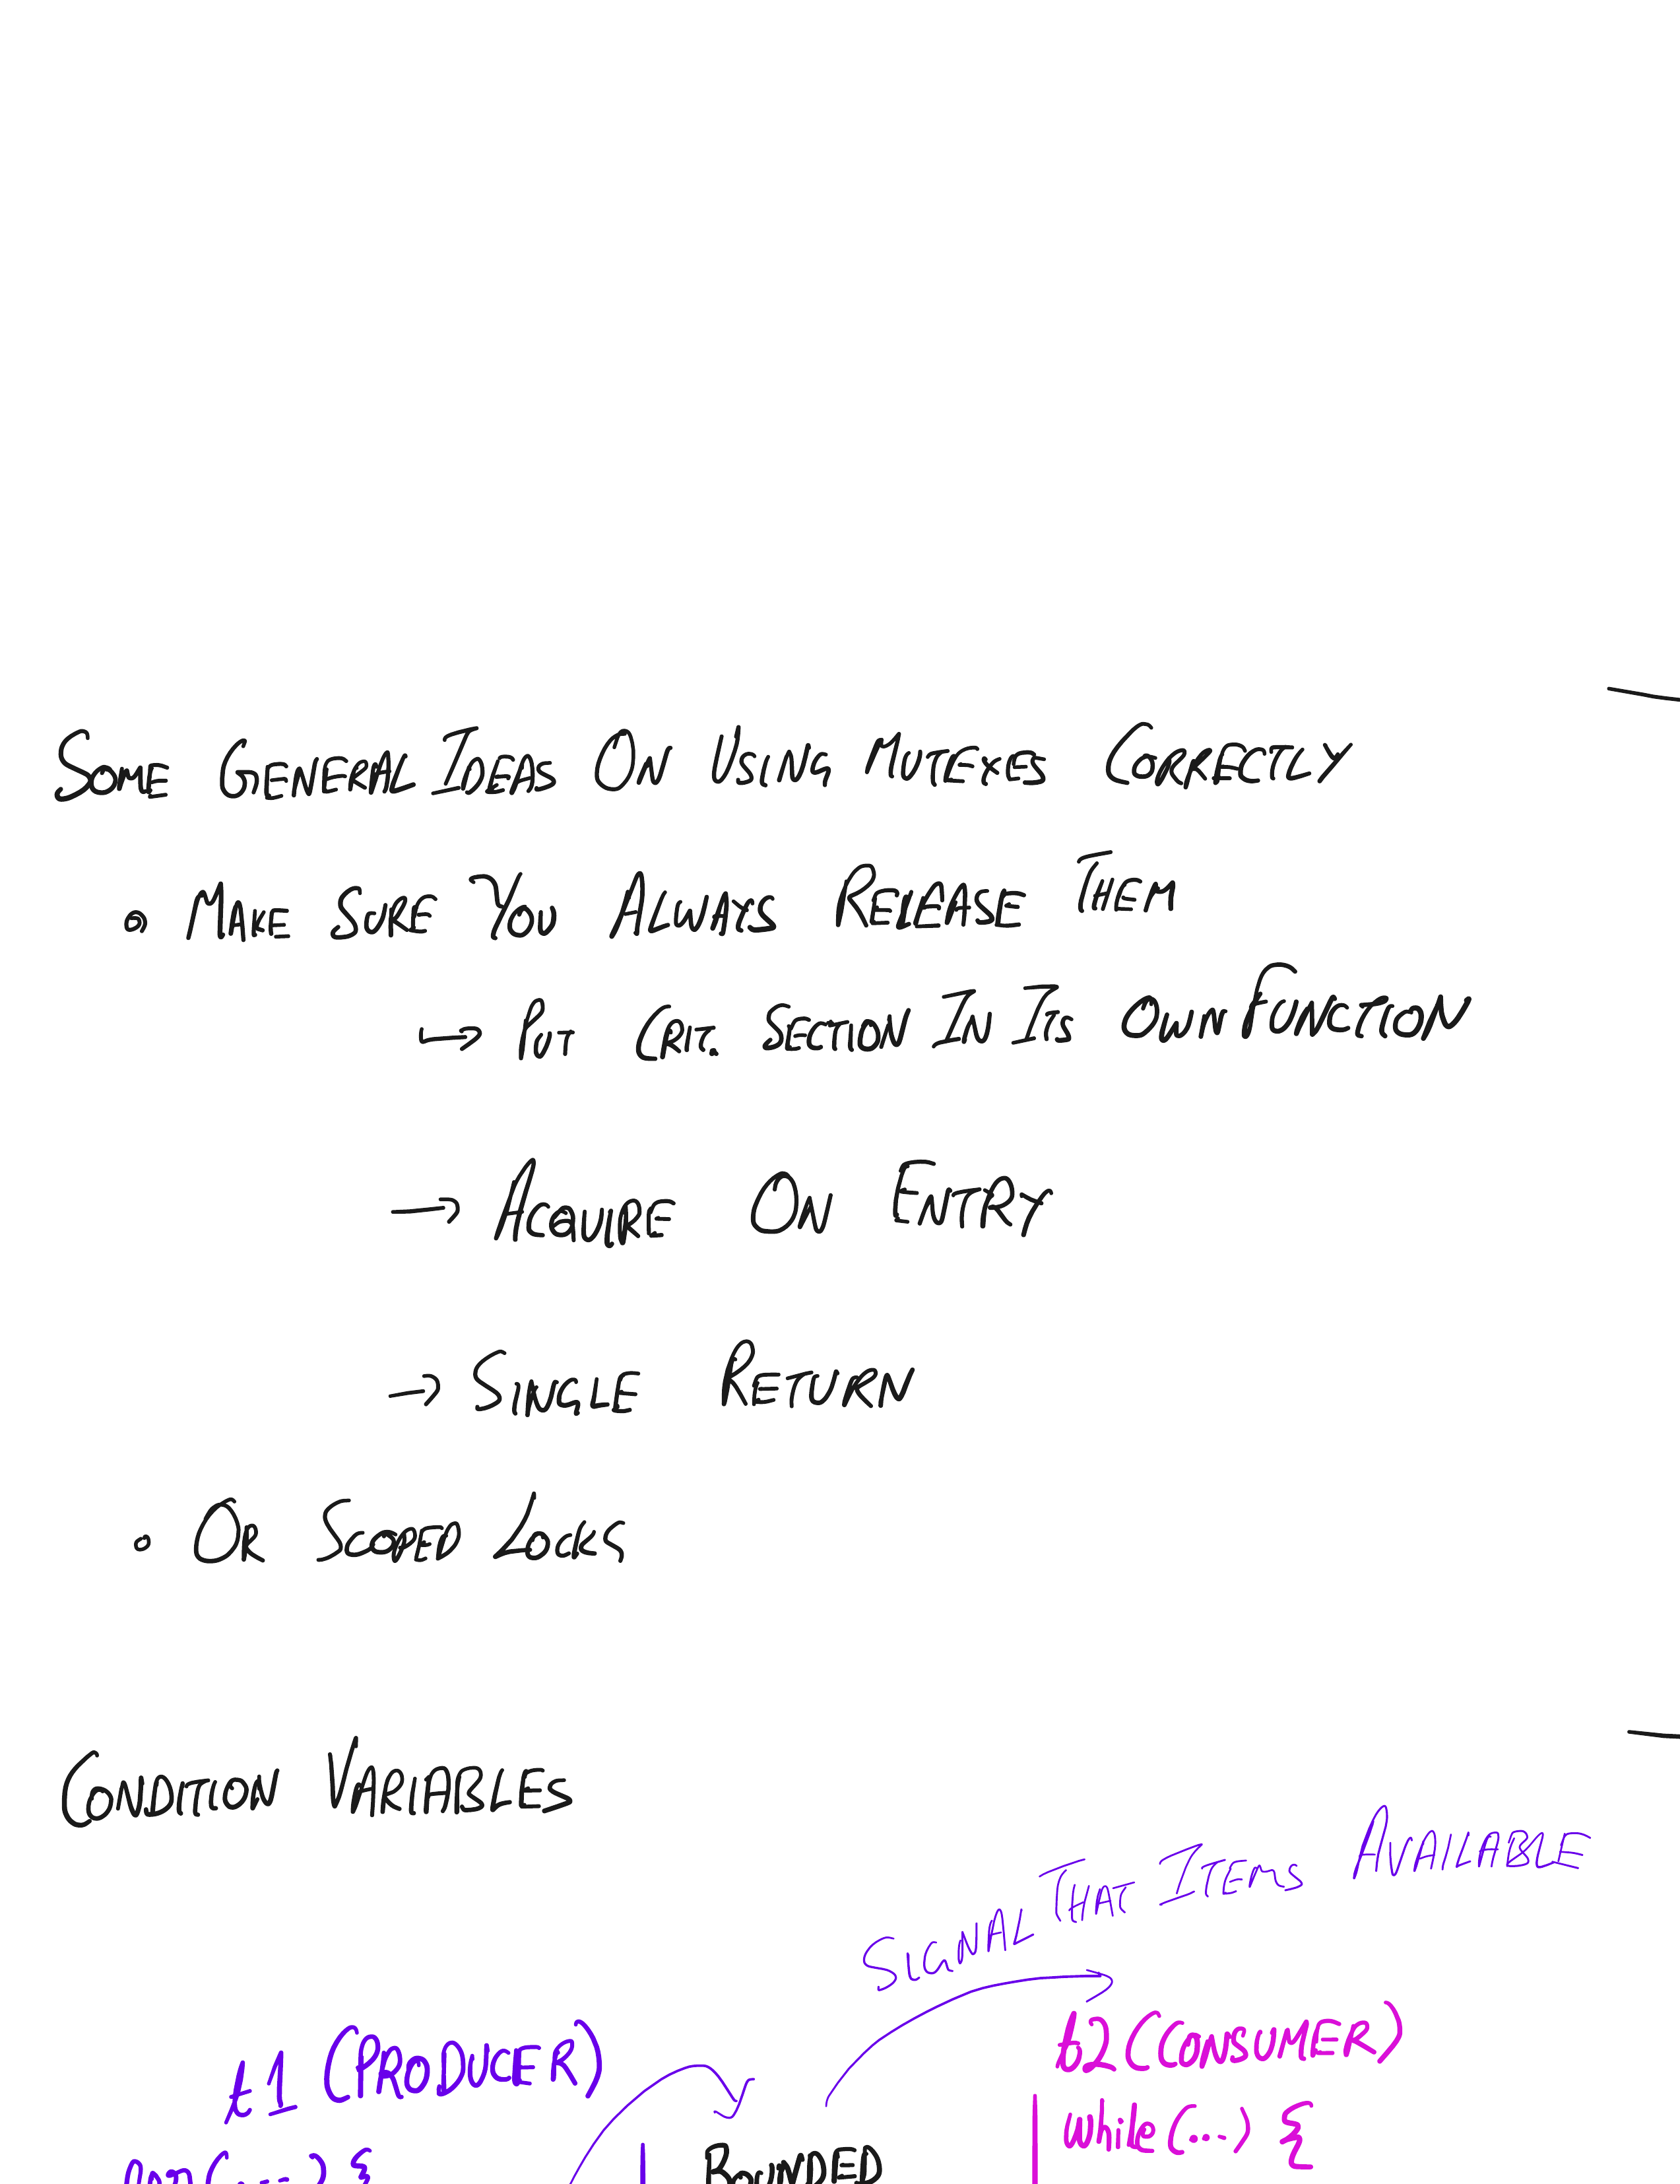 SOME GENERAL IDEAS ON USING MUTEXES CORRECTLY
• MAKE SURE YOU ALWAYS RELEASE THEM
↳ PUT CRIT. SECTION IN ITS OWN FUNCTION
→ ACQUIRE ON ENTRY
→ SINGLE RETURN
• OR SCOPED LOCKS
CONDITION VARIABLES
SIGNAL THAT ITEMS AVAILABLE
t1 (PRODUCER)
t2 (CONSUMER)
while(...) {
for(...) {
BOUNDED